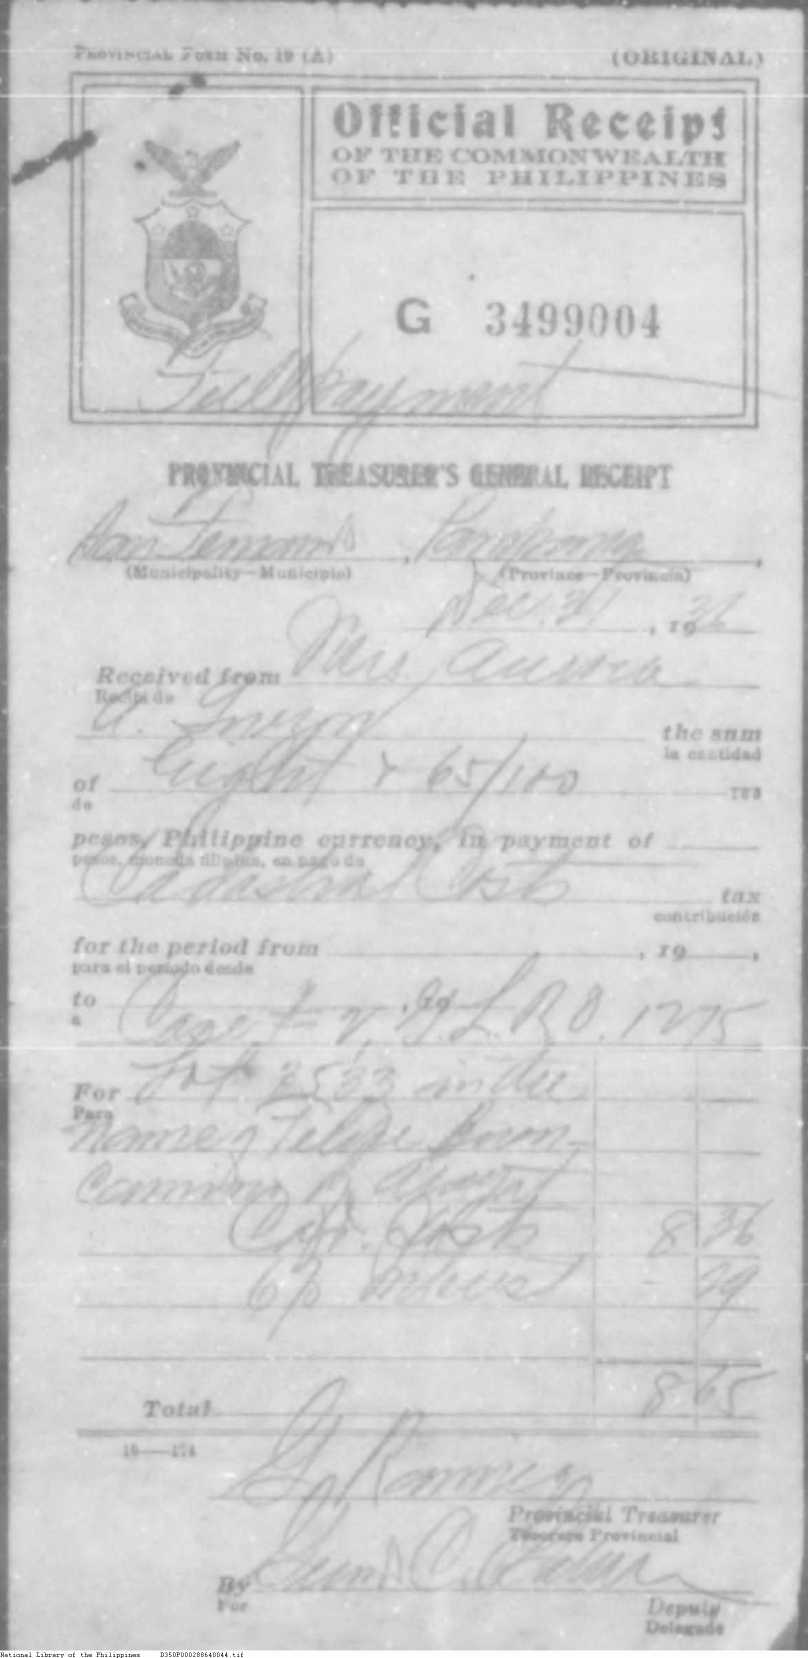 PROVINCIAL FORM No. 19 (A) (ORIGINAL)
Official Receipt
OF THE COMMONWEALTH
OF THE PHILIPPINES
G 3499004
Full payment
PROVINCIAL TREASURER'S GENERAL RECEIPT
San Fernando, Pampanga,
(Municipality—Municipio) (Province—Provincia)
Dec. 31, 1936
Received from Mrs. Aurora
Recibí de
the sum
la cantidad
of Eight & 65/100
de
pesos, Philippine currency, in payment of
pesos, moneda filipina, en pago de
Cadastral Costs tax
contribución
for the period from , 19 ,
para el período desde
to , 19
a
Case # 2, G.L.R.O. 1275
For Lot 2533 in the
Para
name of Felipe Buen-
camino
Cad. Costs 8 36
6% interest - 29
Total 8 65
G. Ramirez
Provincial Treasurer
Tesorero Provincial
By
Por
Deputy
Delegado
National Library of the Philippines D350P000288640044.tif